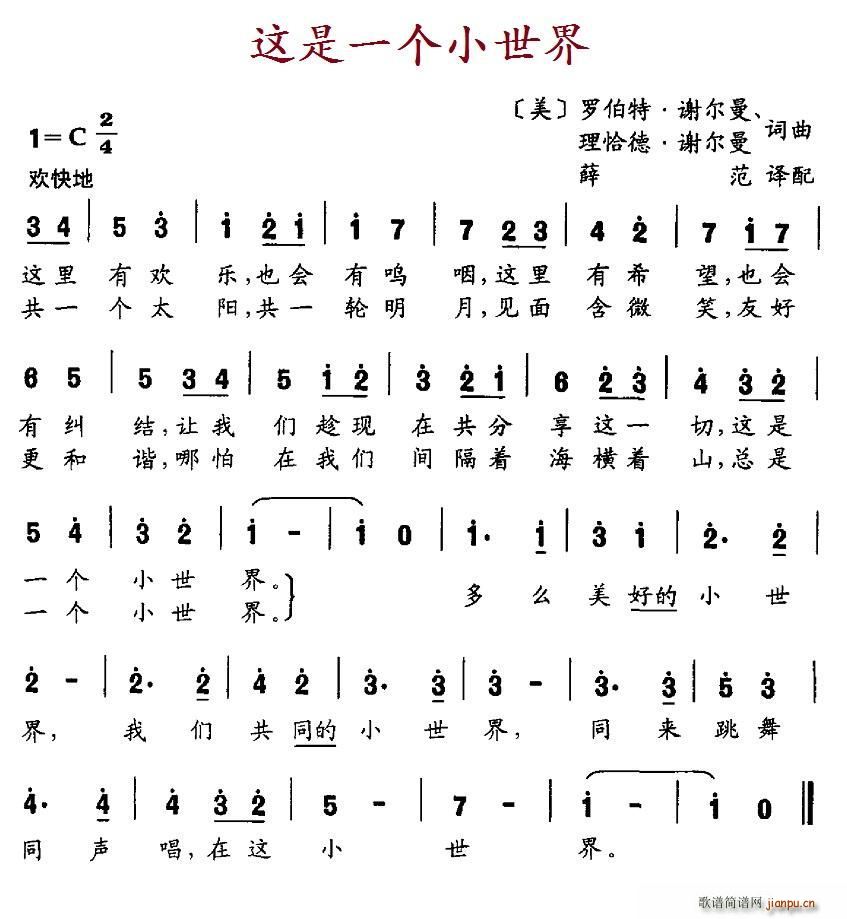 这是一个小世界
1=C 2/4
〔美〕罗伯特·谢尔曼、
理恰德·谢尔曼 词曲
欢快地
薛 范 译配
3 4 | 5 3 | 1 2 1 | 1 7 | 7 2 3 | 4 2 | 7 1 7 |
这里 有欢 乐,也会 有呜 咽,这里 有希 望,也会
共一 个太 阳,共一 轮明 月,见面 含微 笑,友好
6 5 | 5 3 4 | 5 1 2 | 3 2 1 | 6 2 3 | 4 3 2 |
有纠 结,让我 们趁现 在共分 享这一 切,这是
更和 谐,哪怕 在我们 间隔着 海横着 山,总是
5 4 | 3 2 | 1 - | 1 0 | 1· 1 | 3 1 | 2· 2 |
一个 小世 界。
一个 小世 界。
多么 美好的 小世
2 - | 2· 2 | 4 2 | 3· 3 | 3 - | 3· 3 | 5 3 |
界, 我们 共同的 小世 界, 同来 跳舞
4· 4 | 4 3 2 | 5 - | 7 - | 1 - | 1 0 ‖
同声 唱,在这 小 世 界。
歌谱简谱网
jianpu.cn